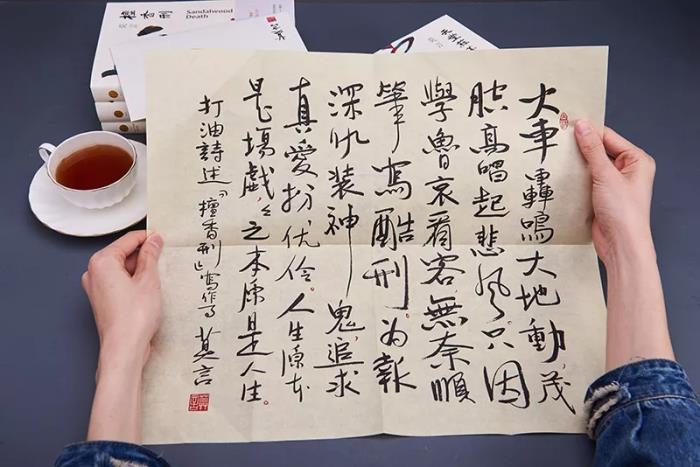 檀香刑
Sandalwood
Death
大車轟鳴大地動,茂
腔高唱起悲風。只因
學魯哀看客,無奈順
筆寫酷刑。为報
深仇装神鬼,追求
真愛扮优伶。人生原本
是場戲,々之本原是人生。
打油詩述「檀香刑」寫作事 莫言